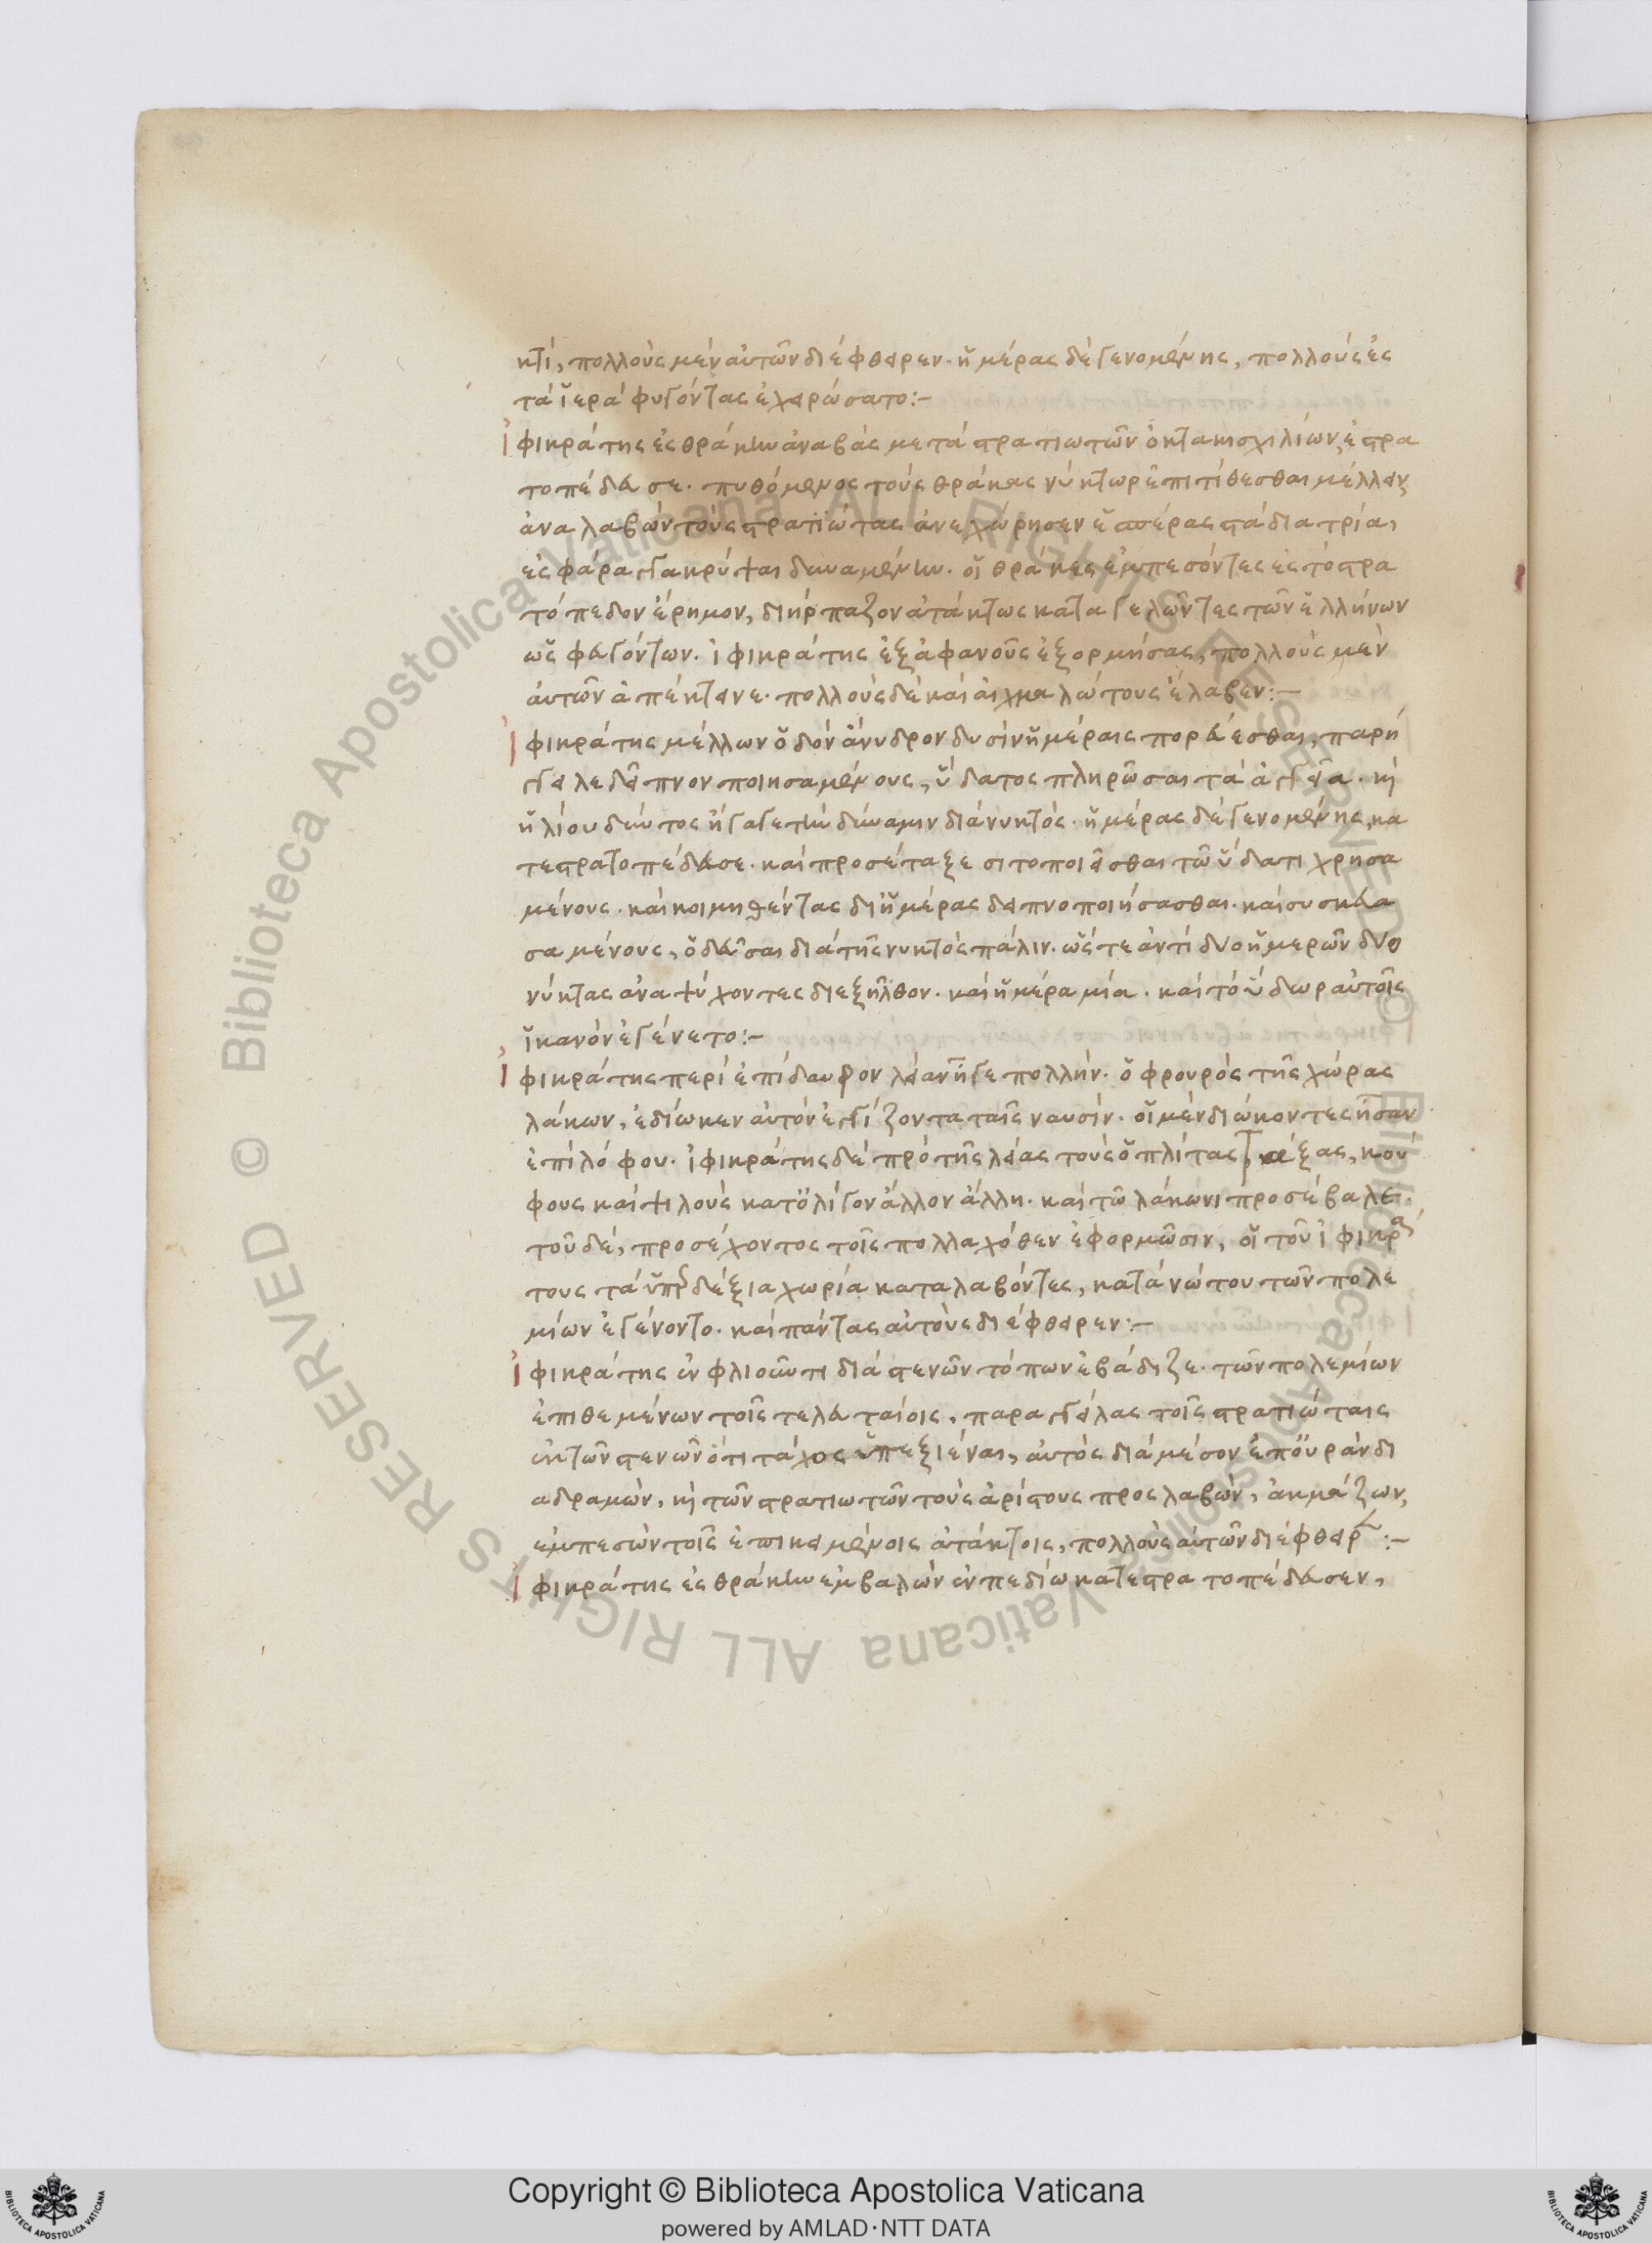 κτὶ, πολλοὺς μὲν αὐτῶν διέφθειρεν· ἡμέρας δὲ γενομένης, πολλοὺς ἐς
τὰ ἱερὰ φυγόντας ἐχειρώσατο:–
Ἰφικράτης ἐς θράκην ἀναβὰς μετὰ στρατιωτῶν ὀκτακισχιλίων, ἐστρα
τοπέδευσε· πυθόμενος τοὺς θράκας νύκτωρ ἐπιτίθεσθαι μέλλειν
ἀναλαβὼν τοὺς στρατιώτας ἀνεχώρησεν ἑσπέρας στάδια τρία,
ἐς φάραγγα κρύψαι δυναμένην. οἱ θρᾷκες ἐμπεσόντες ἐς τὸ στρα
τόπεδον ἔρημον, διήρπαζον ἀτάκτως καταγελῶντες τῶν ἑλλήνων
ὡς φευγόντων. ἰφικράτης ἐξ ἀφανοῦς ἐξορμήσας, πολλοὺς μὲν
αὐτῶν ἀπέκτεινε· πολλοὺς δὲ καὶ αἰχμαλώτους ἔλαβεν:–
Ἰφικράτης μέλλων ὁδὸν ἄνυδρον δυσὶν ἡμέραις πορεύεσθαι, παρή
γγειλε δεῖπνον ποιησαμένους, ὕδατος πληρῶσαι τὰ ἀγγεῖα. κὶ
ἡλίου δύντος ἤγαγε τὴν δύναμιν διὰ νυκτός· ἡμέρας δὲ γενομένης, κα
τεστρατοπέδευσε. καὶ προσέταξε σιτοποιεῖσθαι τῶ ὕδατι χρησα
μένους. καὶ κοιμηθέντας δι ἡμέρας δειπνοποιήσασθαι. καὶ συσκευα
σαμένους, ὁδεῦσαι διὰ τῆς νυκτὸς πάλιν. ὥστε ἀντὶ δυο ἡμερῶν δύο
νύκτας ἀναψύχοντες διεξῆλθον. καὶ ἡμέρα μία. καὶ τὸ ὕδωρ αὐτοῖς
ἱκανὸν ἐγένετο:–
Ἰφικράτης περὶ ἐπίδαυρον λείαν ἦγε πολλήν· ὁ φρουρὸς τῆς χώρας
λάκων, ἐδίωκεν αὐτὸν ἐγγίζοντα ταῖς ναυσίν. οἱ μὲν διώκοντες ἦσαν
ἐπὶ λόφου. ἰφικράτης δὲ πρὸ τῆς λείας τοὺς ὁπλίτας τάξας, κού
φους καὶ ψιλοὺς κατ ὀλίγον ἄλλον ἄλλη. καὶ τῶ λάκωνι προσέβαλε.
τοῦ δὲ, προσέχοντος τοῖς πολλαχόθεν ἐφορμῶσιν, οἱ τοῦ ἰφικρά
τους τὰ ὑπερδέξια χωρία καταλαβόντες, κατὰ νώτου τῶν πολε
μίων ἐγένοντο. καὶ πάντας αὐτοὺς διέφθειρεν:–
Ἰφικράτης ἐν φλιοῦντι διὰ στενῶν τόπων ἐβάδιζε. τῶν πολεμίων
ἐπιθεμένων τοῖς τελευταίοις, παραγγείλας τοῖς στρατιώταις
ἐκ τῶν στενῶν ὅτι τάχος ὑπεξιέναι, αὐτὸς διὰ μέσον ἐπ οὐρὰν δι
αδραμὼν, κὶ τῶν στρατιωτῶν τοὺς ἀρίστους προσλαβὼν, ἀκμάζων,
ἐμπεσὼν τοῖς ἐπικειμένοις ἀτάκτοις, πολλοὺς αὐτῶν διέφθειρ:–
Ἰφικράτης ἐς θράκην ἐμβαλὼν ἐν πεδίω κατεστρατοπέδευσεν,
Copyright © Biblioteca Apostolica Vaticana
powered by AMLAD·NTT DATA
BIBLIOTECA APOSTOLICA VATICANA
BIBLIOTECA APOSTOLICA VATICANA
© Biblioteca Apostolica Vaticana ALL RIGHTS RESERVED © Biblioteca Apostolica Vaticana ALL RIGHTS RESERVED